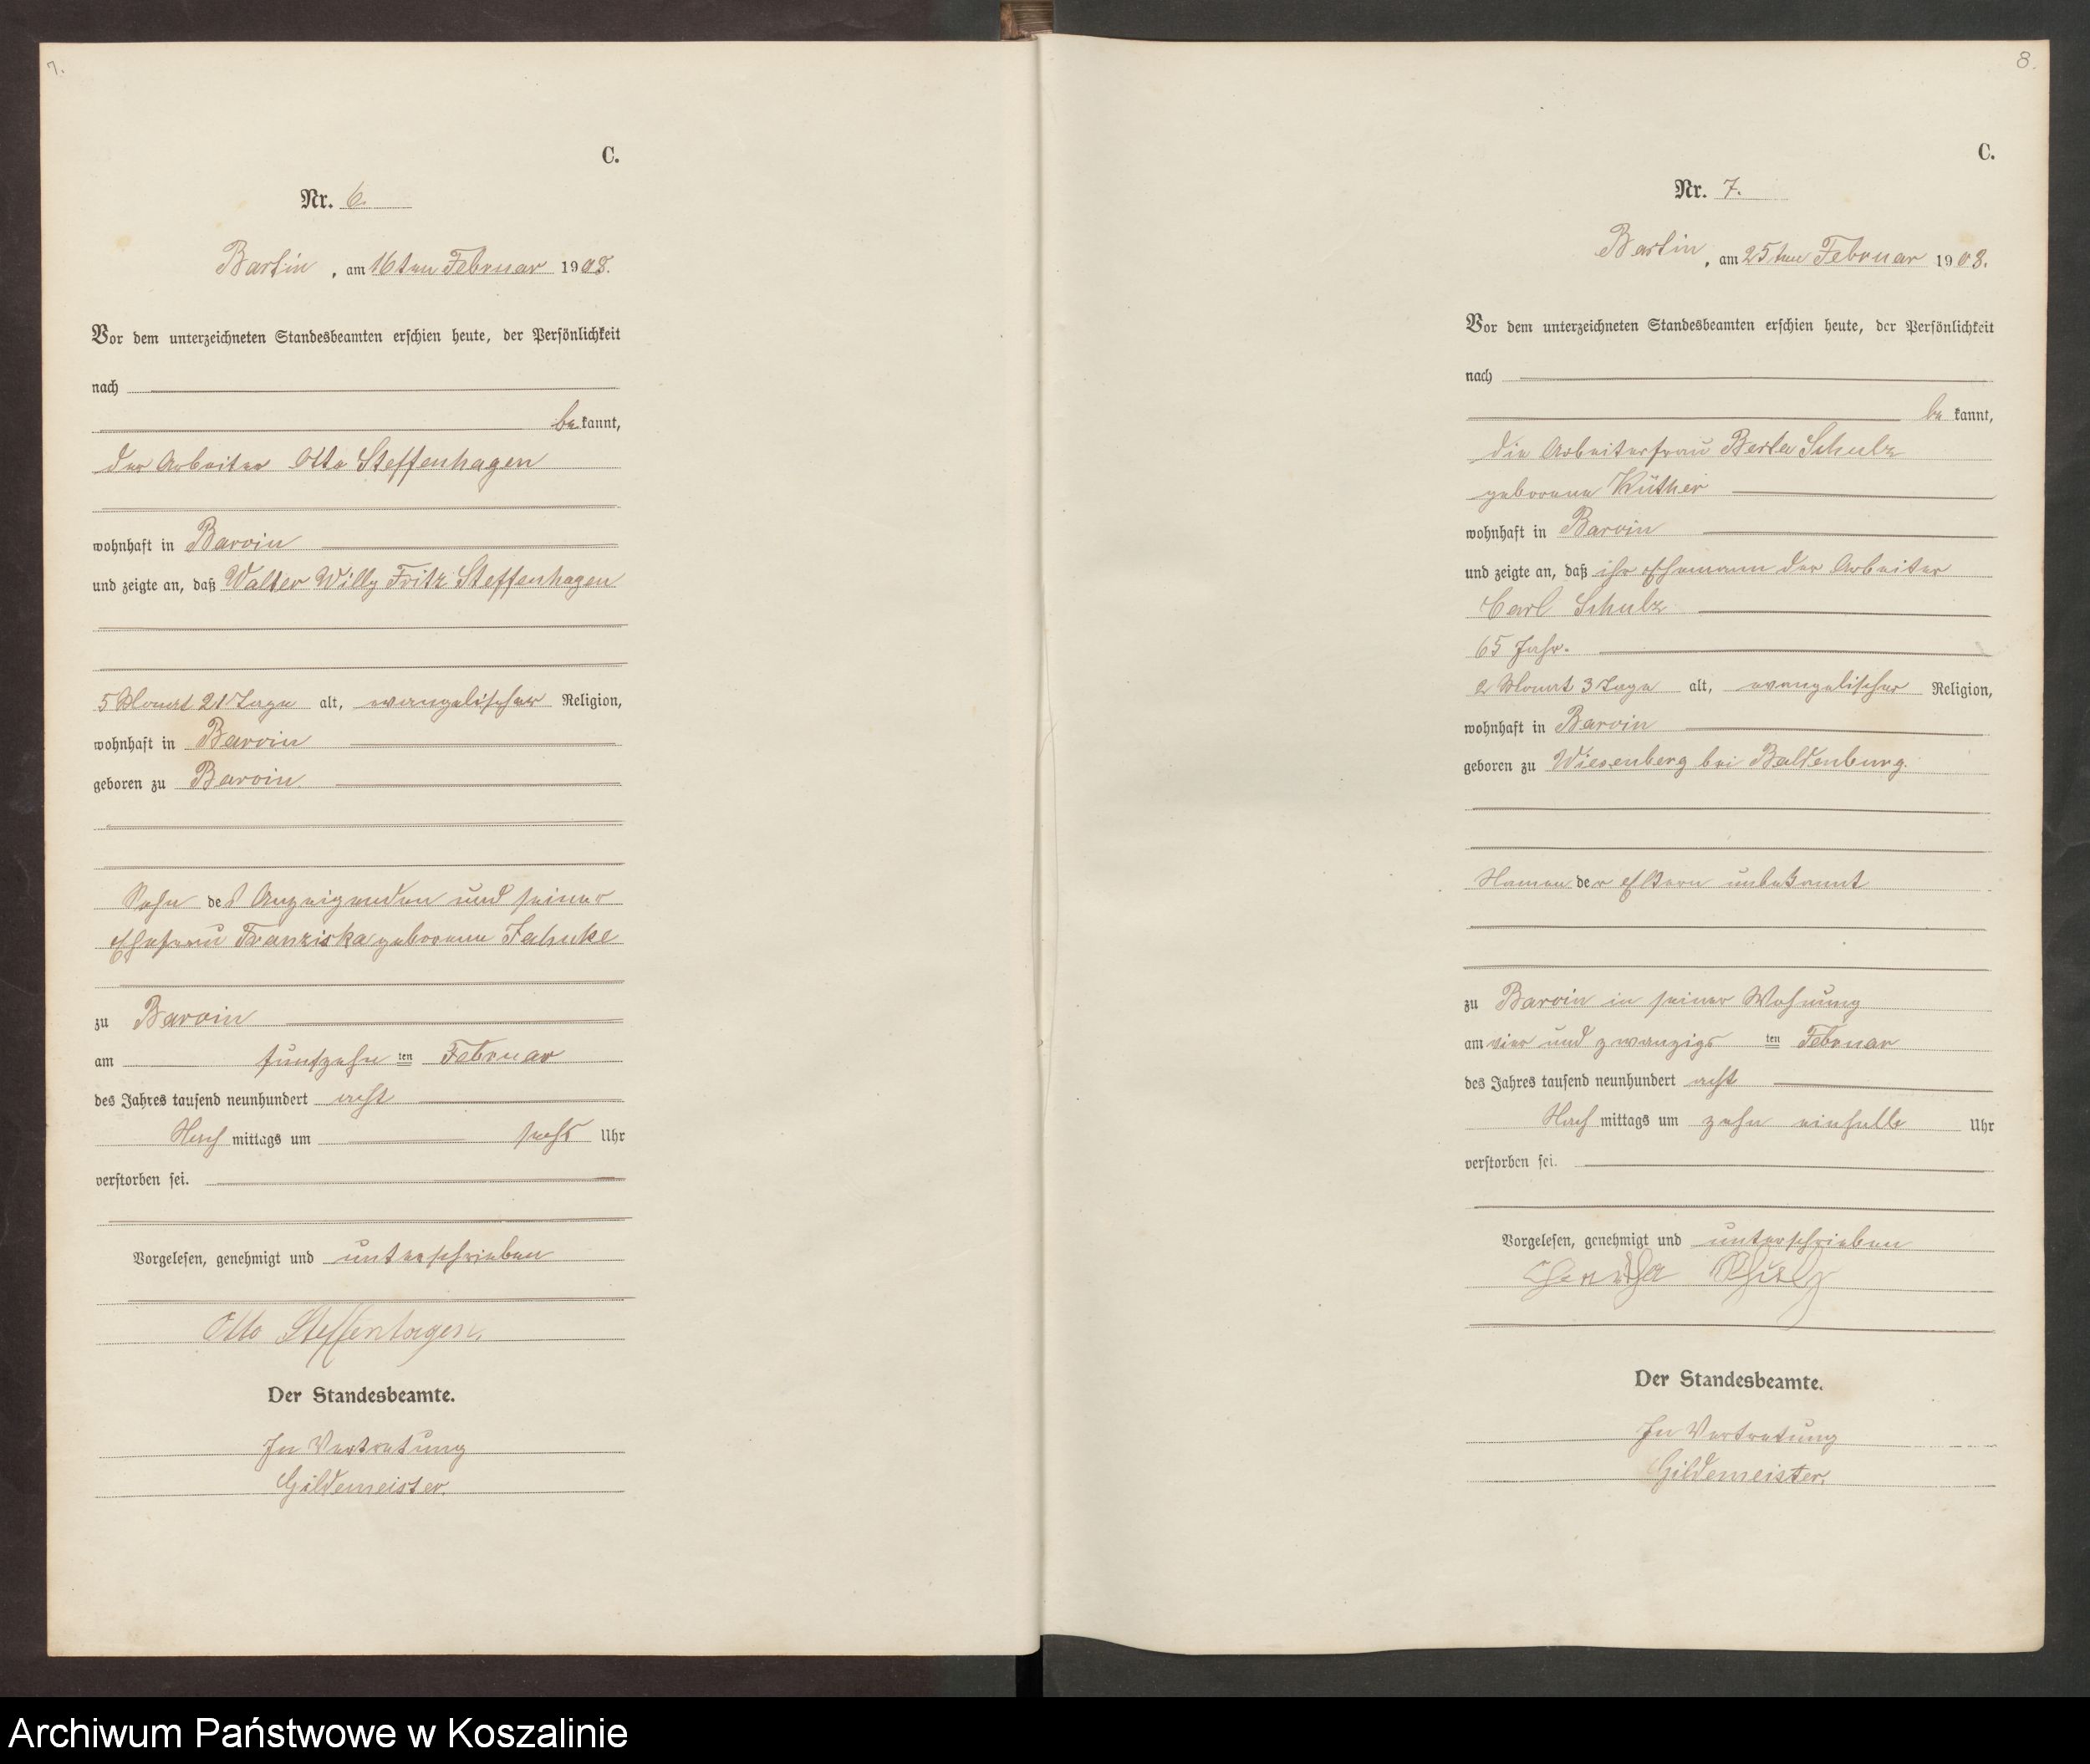 7.
C.
Nr. 6.
Bartin, am 16ten Februar 1908.
Vor dem unterzeichneten Standesbeamten erschien heute, der Persönlichkeit
nach
bekannt,
der Arbeiter Otto Steffenhagen
wohnhaft in Barvin
und zeigte an, daß Walter Willy Fritz Steffenhagen
5 Monat 21 Tage alt, evangelischer Religion,
wohnhaft in Barvin
geboren zu Barvin.
Sohn des Anzeigenden und seiner
Ehefrau Franziska geborene Jahnke
zu Barvin
am fünfzehn ten Februar
des Jahres tausend neunhundert acht
Nach mittags um sechs Uhr
verstorben sei.
Vorgelesen, genehmigt und unterschrieben
Otto Steffenhagen.
Der Standesbeamte.
In Vertretung
Gildemeister.
8.
C.
Nr. 7.
Bartin, am 25ten Februar 1908.
Vor dem unterzeichneten Standesbeamten erschien heute, der Persönlichkeit
nach
bekannt,
die Arbeiterfrau Berta Schulz
geborene Küther
wohnhaft in Barvin
und zeigte an, daß ihr Ehemann der Arbeiter
Carl Schulz
65 Jahr.
2 Monat 3 Tage alt, evangelischer Religion,
wohnhaft in Barvin
geboren zu Wiesenberg bei Baldenburg.
Namen der Eltern unbekannt
zu Barvin in seiner Wohnung
am vier und zwanzigs ten Februar
des Jahres tausend neunhundert acht
Nach mittags um zehn einhalb Uhr
verstorben sei.
Vorgelesen, genehmigt und unterschrieben
Schulz
Der Standesbeamte.
In Vertretung
Gildemeister.
Archiwum Państwowe w Koszalinie